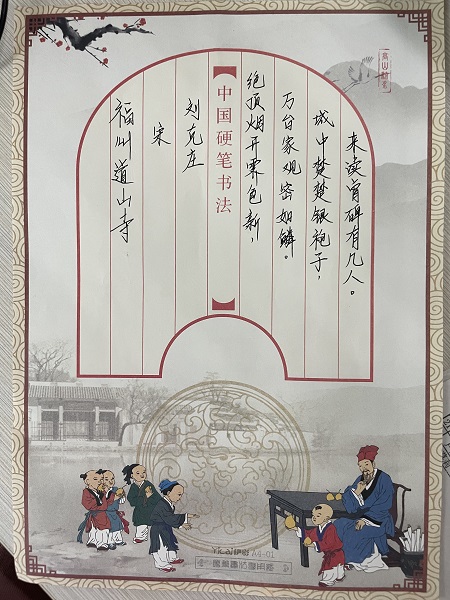 福州道山寺
宋
刘克庄
【中国硬笔书法】
绝顶烟开霁色新，
万台家观密如鳞。
城中楚楚银袍子，
来读曾碑有几人。
A4-01